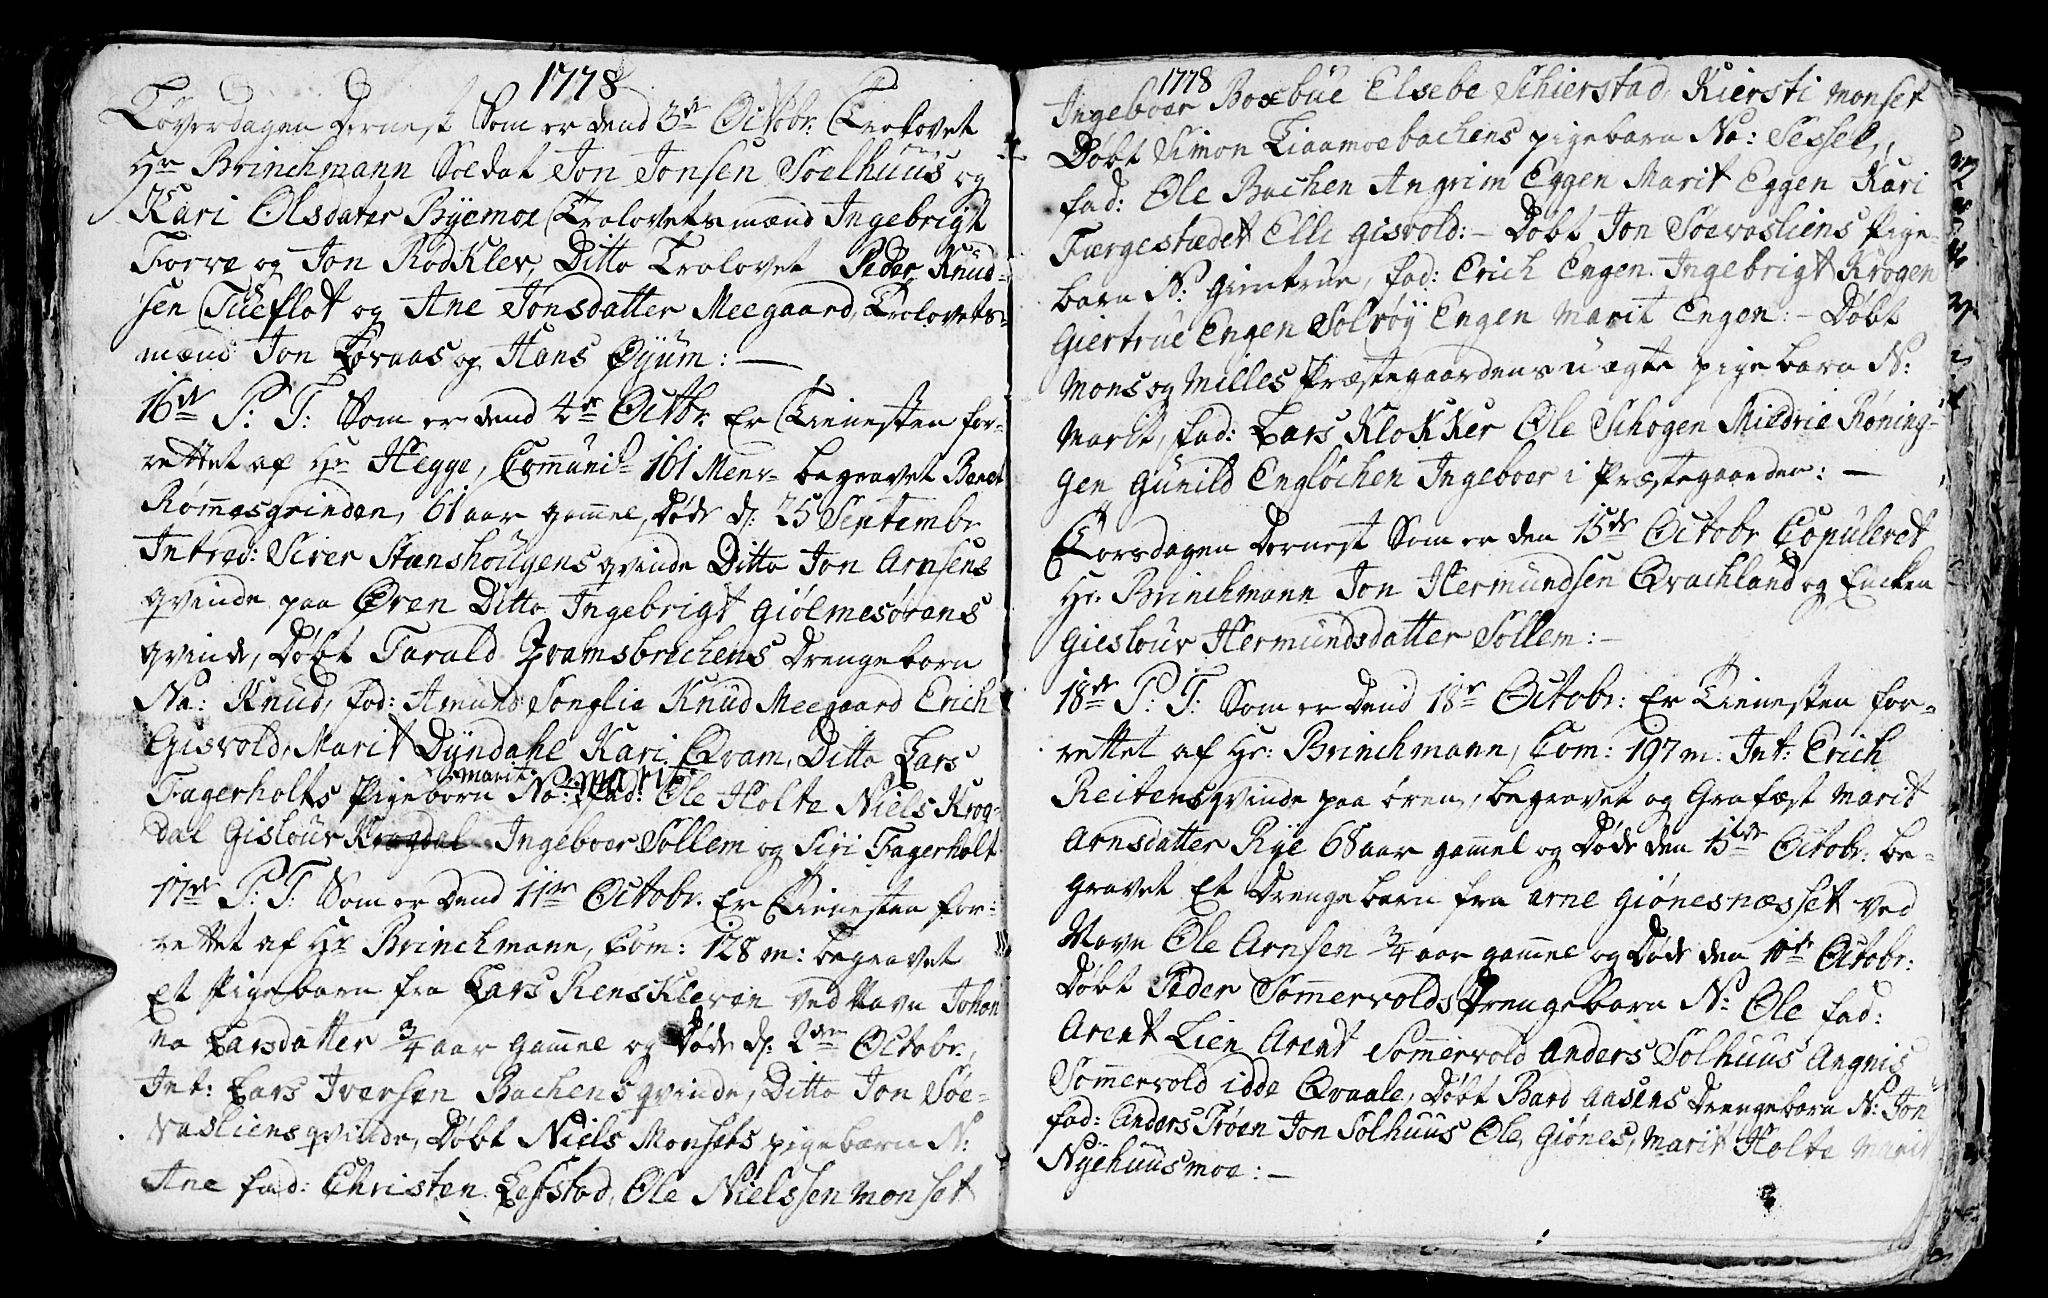 1778
Løverdagen dernest Som er dend 3de Octobr: Trolovet
Hr Brinchmann Soldat Jon Jonsen Soelhuus og
Kari Olsdater Byemoe Trolovetsmænd Ingebrigt
Forve og Jon Rødklev, Ditto Trolovet Peder Knud-
sen Tueflot og Ane Jonsdatter Meegaard Trolovets-
mænd Jon Løvaas og Hans Øyum: —
16de P: T: Som er dend 4de Octbr: Er Tienesten for-
rettet af Hr Hegge, Communi: 161 Menr= begravet Beret
Rømmesgrinden, 61 aar gammel, døde d: 25 Septembr
Introd: Siver Stenshougens qvinde Ditto Jon Arnsens
qvinde paa Ören Ditto Ingebrigt Giölmesörens
qvinde, Döbt Tarald Hvamsbrechens drengebarn
Na: Knud, fad: Amund Songlie Knud Meegaard Erich
Gisvold, Marit Dÿndahl Kari Qvam, Ditto Lars
Fagerholts Pigebarn Na: marit fad: Ole Holte Niels Krog-
dal Gislour Krogdal Ingeboer Sollem og Siri Fagerholt
17de P: T: Som er dend 11te Octobr. Er Tienesten for-
rettet af Hr Brinchmann, Com: 128 m: begravet
Et Pigebarn fra Lars Rensklevan ved Navn Johan
na Larsdatter 3/4 aar gammel og döde d: 2den Octobr.,
Int: Lars Iversen Bachens qvinde, Ditto Jon Söe-
vasliens qvinde, Döbt Niels Monsets pigebarn N:
Ane fad: Christen Lefstad, Ole Nielssen monset
1778
Ingeboer Boxbue Elsebe Schierstad, Kiersti monset
Döbt Simon Liaamoebachens pigebarn Na: Sessel,
fad: Ole Bachen Angrim Eggen Marit Eggen Kari
Færgestædet Elli gisvold: — Döbt Jon Söevasliens Pige-
barn N: giertrue, fad: Erich Engen Ingebrigt Krogen
Giertrue Engen Solvöy Engen Marit Engen: — Döbt
Mons og Milles Præstegaardens uægte pigebarn N:
Marit, fad: Lars Klokker Ole Schogen Mildrie Röning-
gen Gunild Englöchen Ingeboer i Præstegaarden: —
Torsdagen dernest Som er den 15de Octobr Copuleret
Hr: Brinchmann Jon Hermundsen Qvachland og Encken
Gieslour Hermundsdatter Sollem: —
18de P: T: Som er dend 18de Octobr: Er Tienesten for-
rettet af Hr: Brinchmann, Com: 197 m: Int: Erich
Reitens qvinde paa ören, begravet og Grafæst Marit
Arnsdatter Rÿe 68 aar gammel og Döde den 13de Octobr: be-
gravet Et Drengebarn fra Arne Giönesnæsset ved
Navn Ole Arnsen 3/4 aar gammel og Döde den 10de Octobr:
Döbt Peder Sommervolds Drengebarn N: Ole fad:
Arent Lien Arent Sommervold Anders Solhuus Angnis
Sommervold idde Qvaale, Döbt Bard Aasens Drengebarn N: Jon
fad: Anders Tröen Jon Solhuus Ole Giönes, Marit Holte Marit
Nÿehuusmoe: —